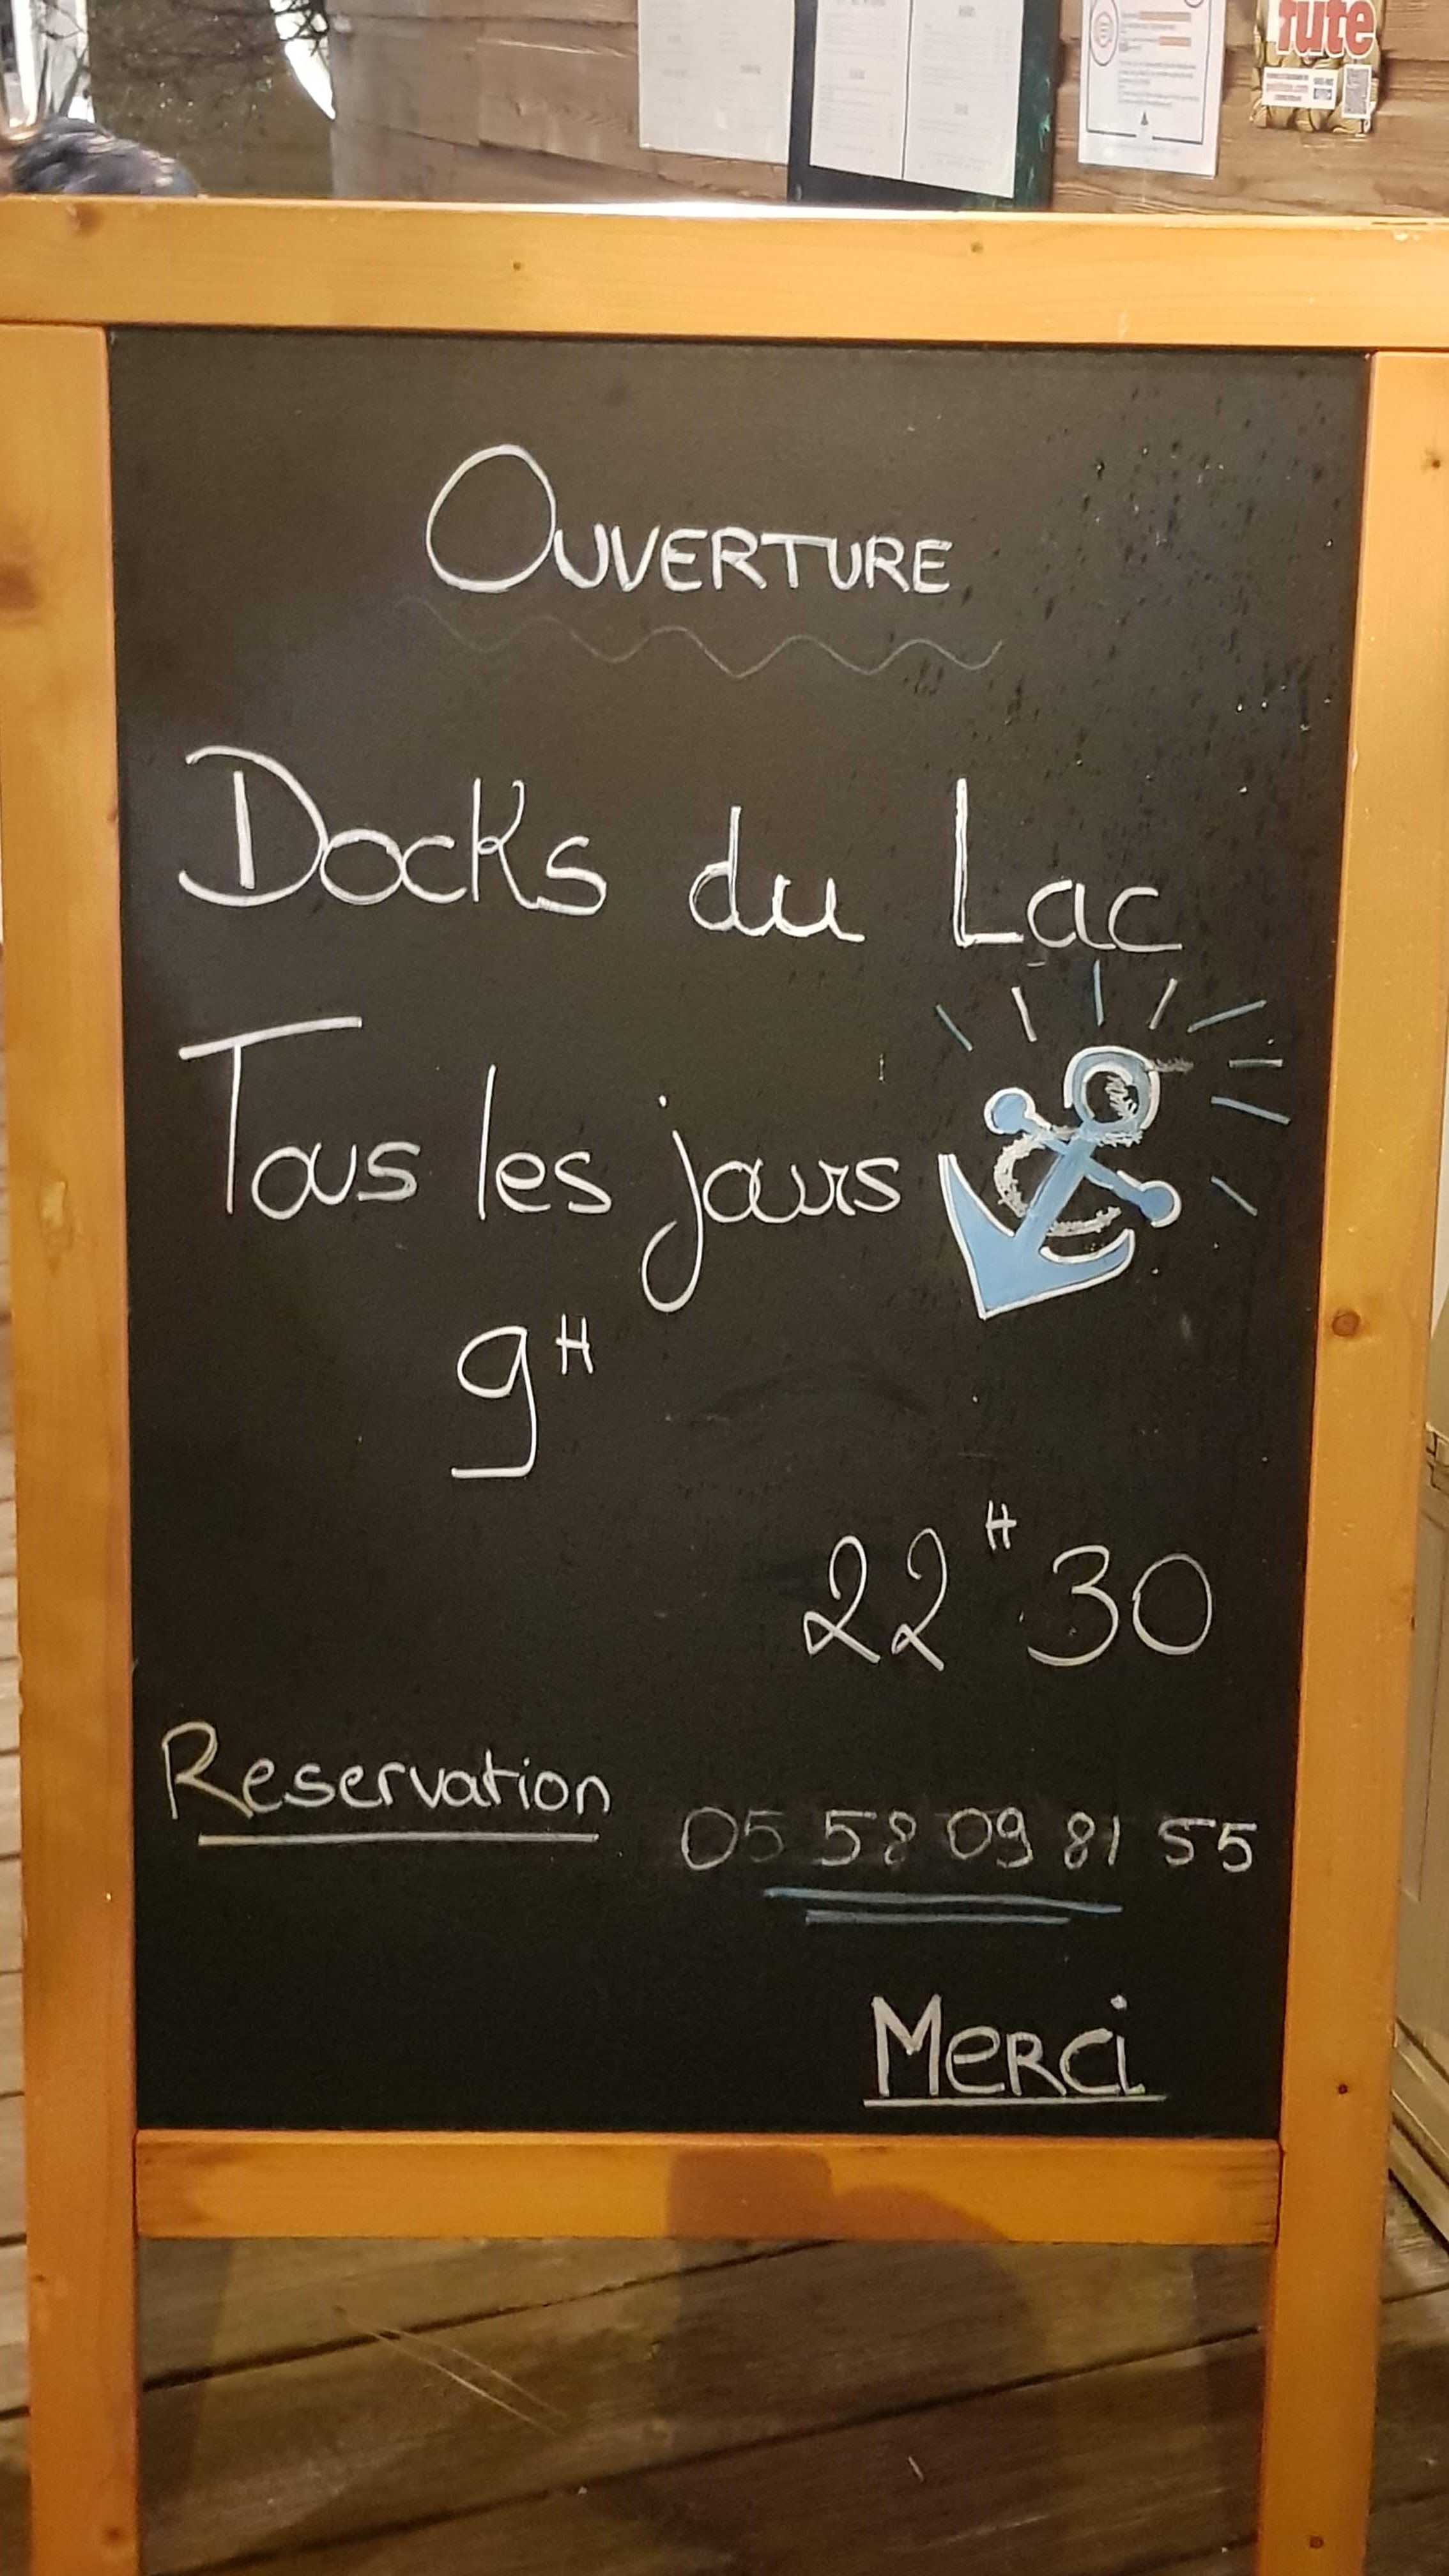 fute
OUVERTURE
Docks du Lac
Tous les jours
9H
22H30
Reservation
05 58 09 81 55
Merci